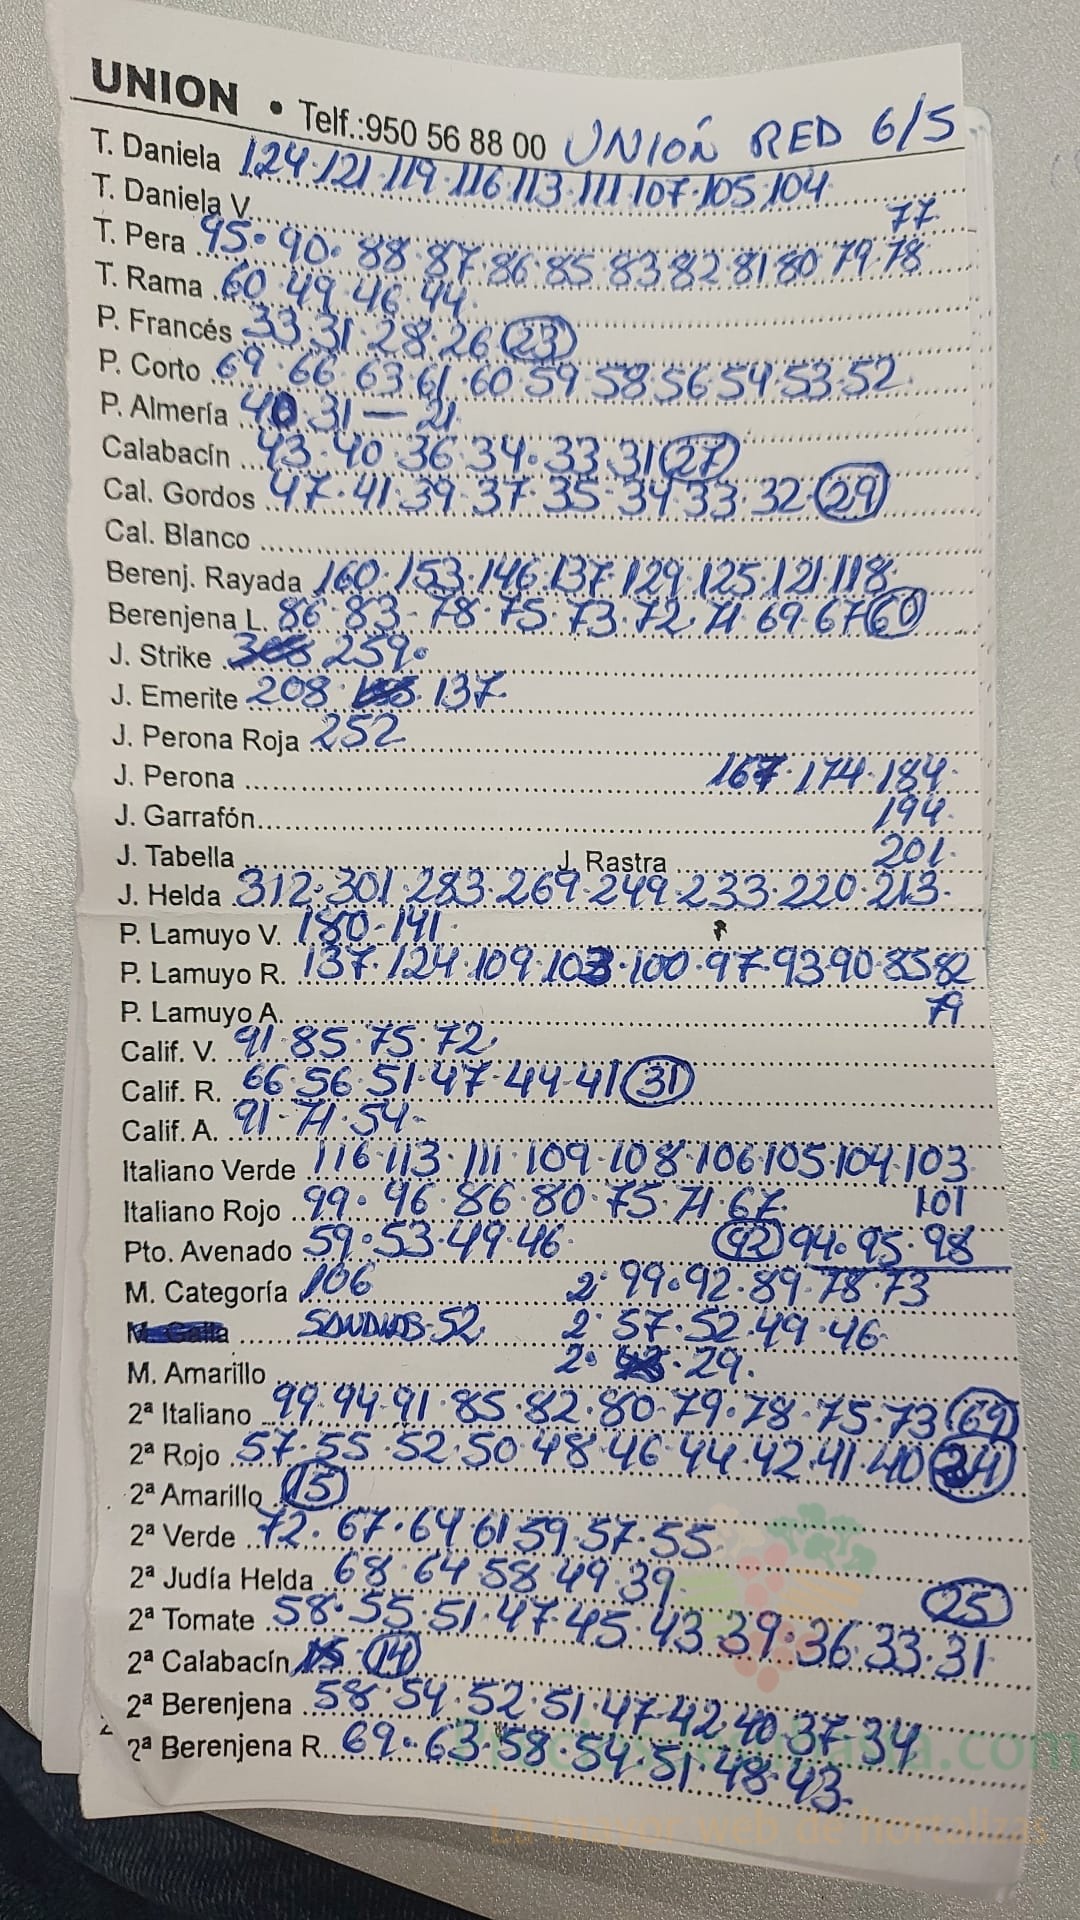 UNION • Telf.:950 56 88 00 UNIÓN RED 6/5
T. Daniela 124·121·119·116·113·111·107·105·104
T. Daniela V. 77
T. Pera 95·90·88·87·86·85·83·82·81·80·79·78
T. Rama 60·49·46·44
P. Francés 33·31·28·26 23
P. Corto 69·66·63·61·60·59·58·56·54·53·52
P. Almería 40·31—21
Calabacín 43·40·36·34·33·31 27
Cal. Gordos 47·41·39·37·35·34·33·32 29
Cal. Blanco
Berenj. Rayada 160·153·146·137·129·125·121·118
Berenjena L. 86·83·78·75·73·72·71·69·67 60
J. Strike 259
J. Emerite 208 137
J. Perona Roja 252
J. Perona 167·174·184
J. Garrafón 194
J. Tabella J. Rastra 201
J. Helda 312·301·283·269·249·233·220·213
P. Lamuyo V. 180·141
P. Lamuyo R. 137·124·109·103·100·97·93·90·85·82
P. Lamuyo A. 79
Calif. V. 91·85·75·72
Calif. R. 66·56·51·47·44·41 31
Calif. A. 91·71·54
Italiano Verde 116·113·111·109·108·106·105·104·103
Italiano Rojo 99·96·86·80·75·71·67 101
Pto. Avenado 59·53·49·46 92 94·95·98
M. Categoría 106 2ª 99·92·89·78·73
M. Galia SANDIAS·52 2ª 57·52·49·46
M. Amarillo 2ª 29
2ª Italiano 99·94·91·85·82·80·79·78·75·73 69
2ª Rojo 57·55·52·50·48·46·44·42·41·40 34
2ª Amarillo 15
2ª Verde 72·67·64·61·59·57·55
2ª Judía Helda 68·64·58·49·39 25
2ª Tomate 58·55·51·47·45·43·39·36·33·31
2ª Calabacín 14
2ª Berenjena 58·54·52·51·47·42·40·37·34
2ª Berenjena R. 69·63·58·54·51·48·43
La mayor web de hortalizas